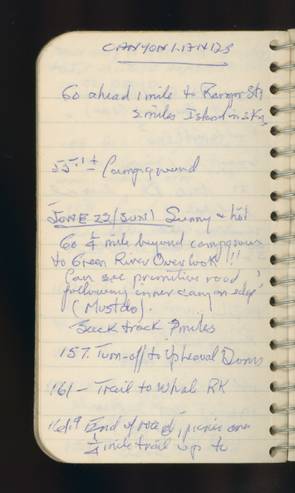 CANYON LANDS
Go ahead 1 mile to Ranger St,
2 miles Island in sky,
55.1± Campground
JUNE 22/SUN) Sunny & hot
Go ¼ mile beyond campground
to Green River Overlook!!
Can see primitive road
following inner canyon edge!
(Must do).
Back track 9 miles
157. Turn-off to Upheaval Dome
161 – Trail to Whale RK
161.9 End of road, picnic area
¼ mile trail up to